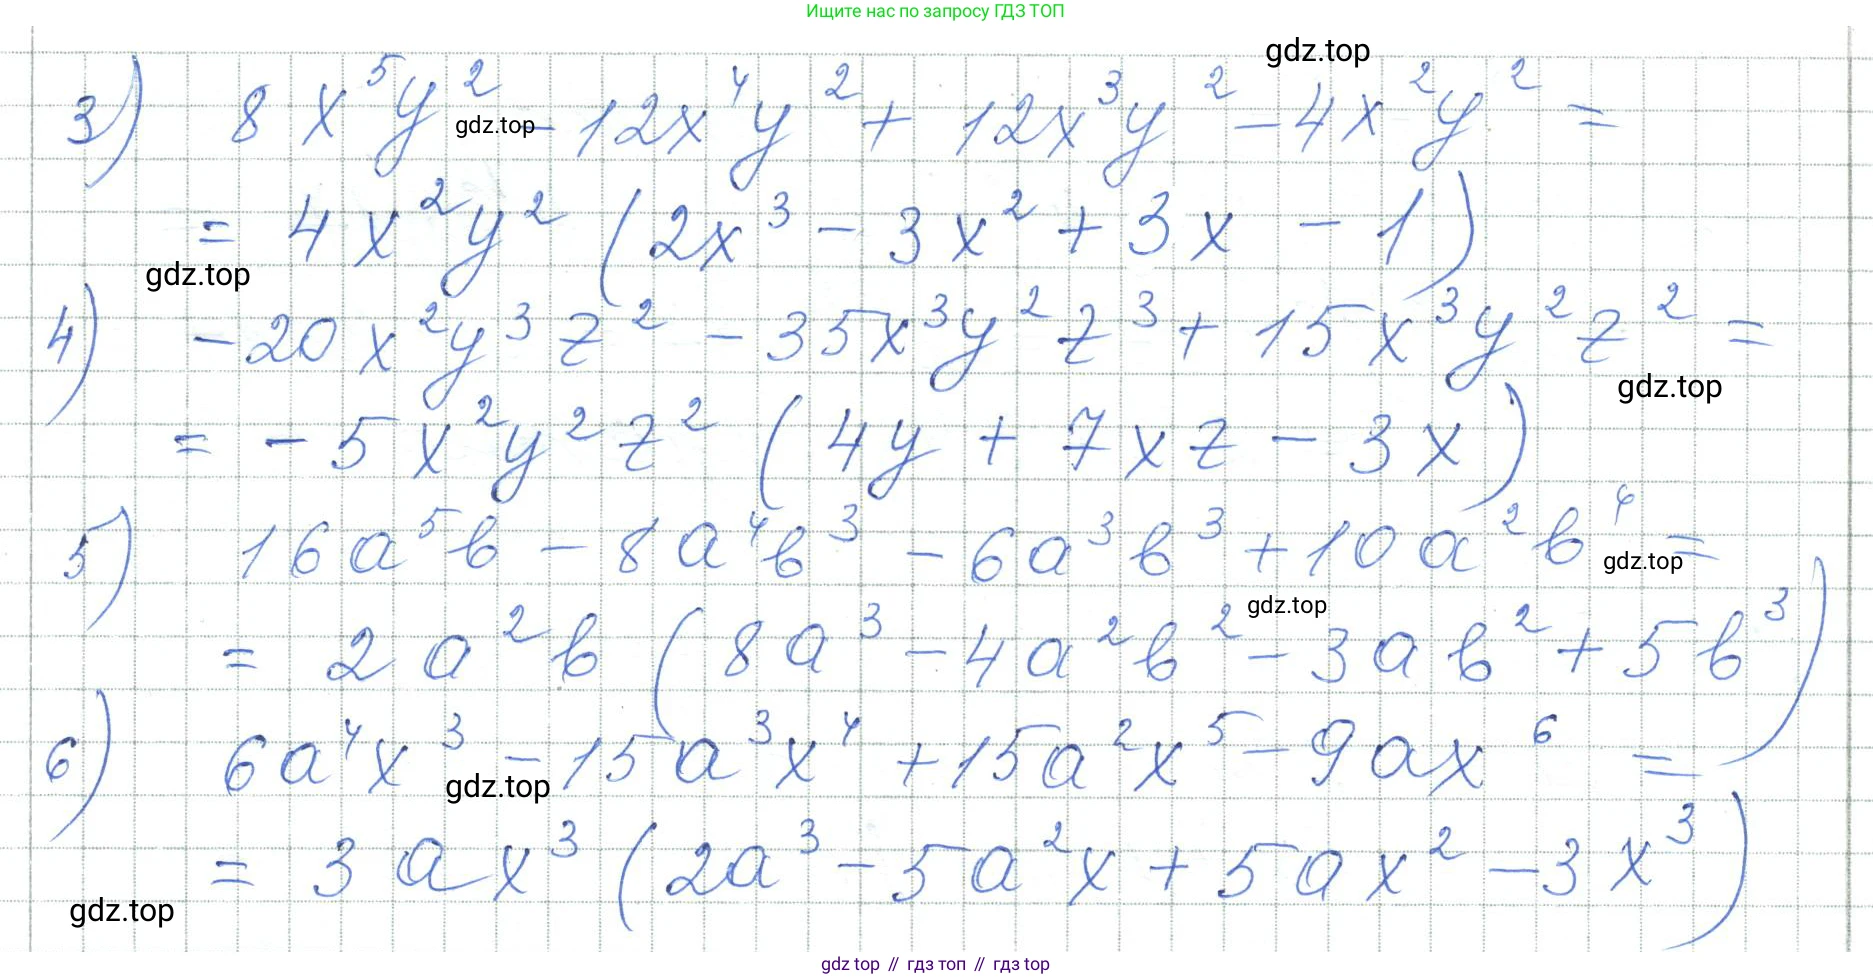 Ищите нас по запросу ГДЗ ТОП
gdz.top
3) 8x⁵y² - 12x⁴y² + 12x³y² - 4x²y² =
gdz.top
= 4x²y² (2x³ - 3x² + 3x - 1)
gdz.top
4) -20x²y³z² - 35x³y²z³ + 15x³y²z² =
gdz.top
= -5x²y²z² (4y + 7xz - 3x)
5) 16a⁵b - 8a⁴b³ - 6a³b³ + 10a²b⁴ =
gdz.top
gdz.top
= 2a²b (8a³ - 4a²b² - 3ab² + 5b³)
6) 6a⁴x³ - 15a³x⁴ + 15a²x⁵ - 9ax⁶ =
gdz.top
= 3ax³ (2a³ - 5a²x + 5ax² - 3x³)
gdz.top
gdz top // гдз топ // гдз top